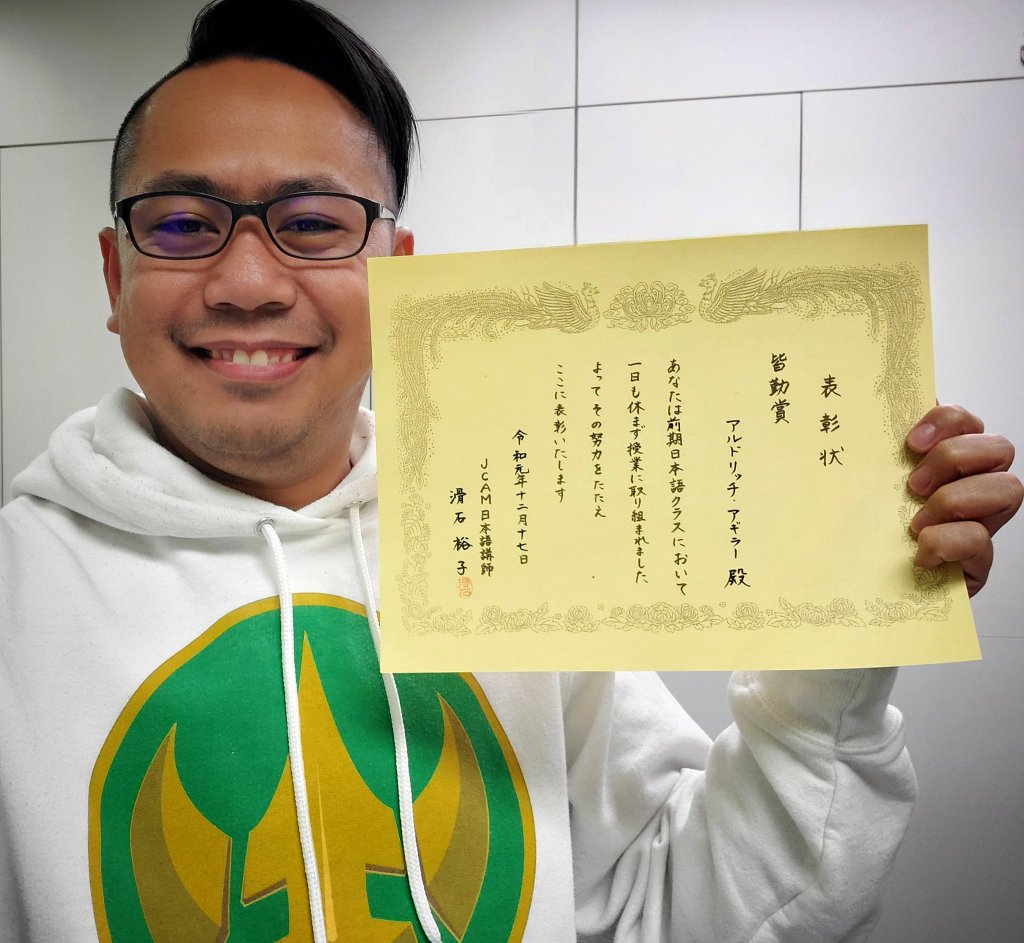 表彰状
皆勤賞
アルドリッチ・アギラー 殿
あなたは前期日本語クラスにおいて
一日も休まず授業に取り組まれました
よってその努力をたたえ
ここに表彰いたします
令和元年十二月十七日
JCAM日本語講師
滑石裕子